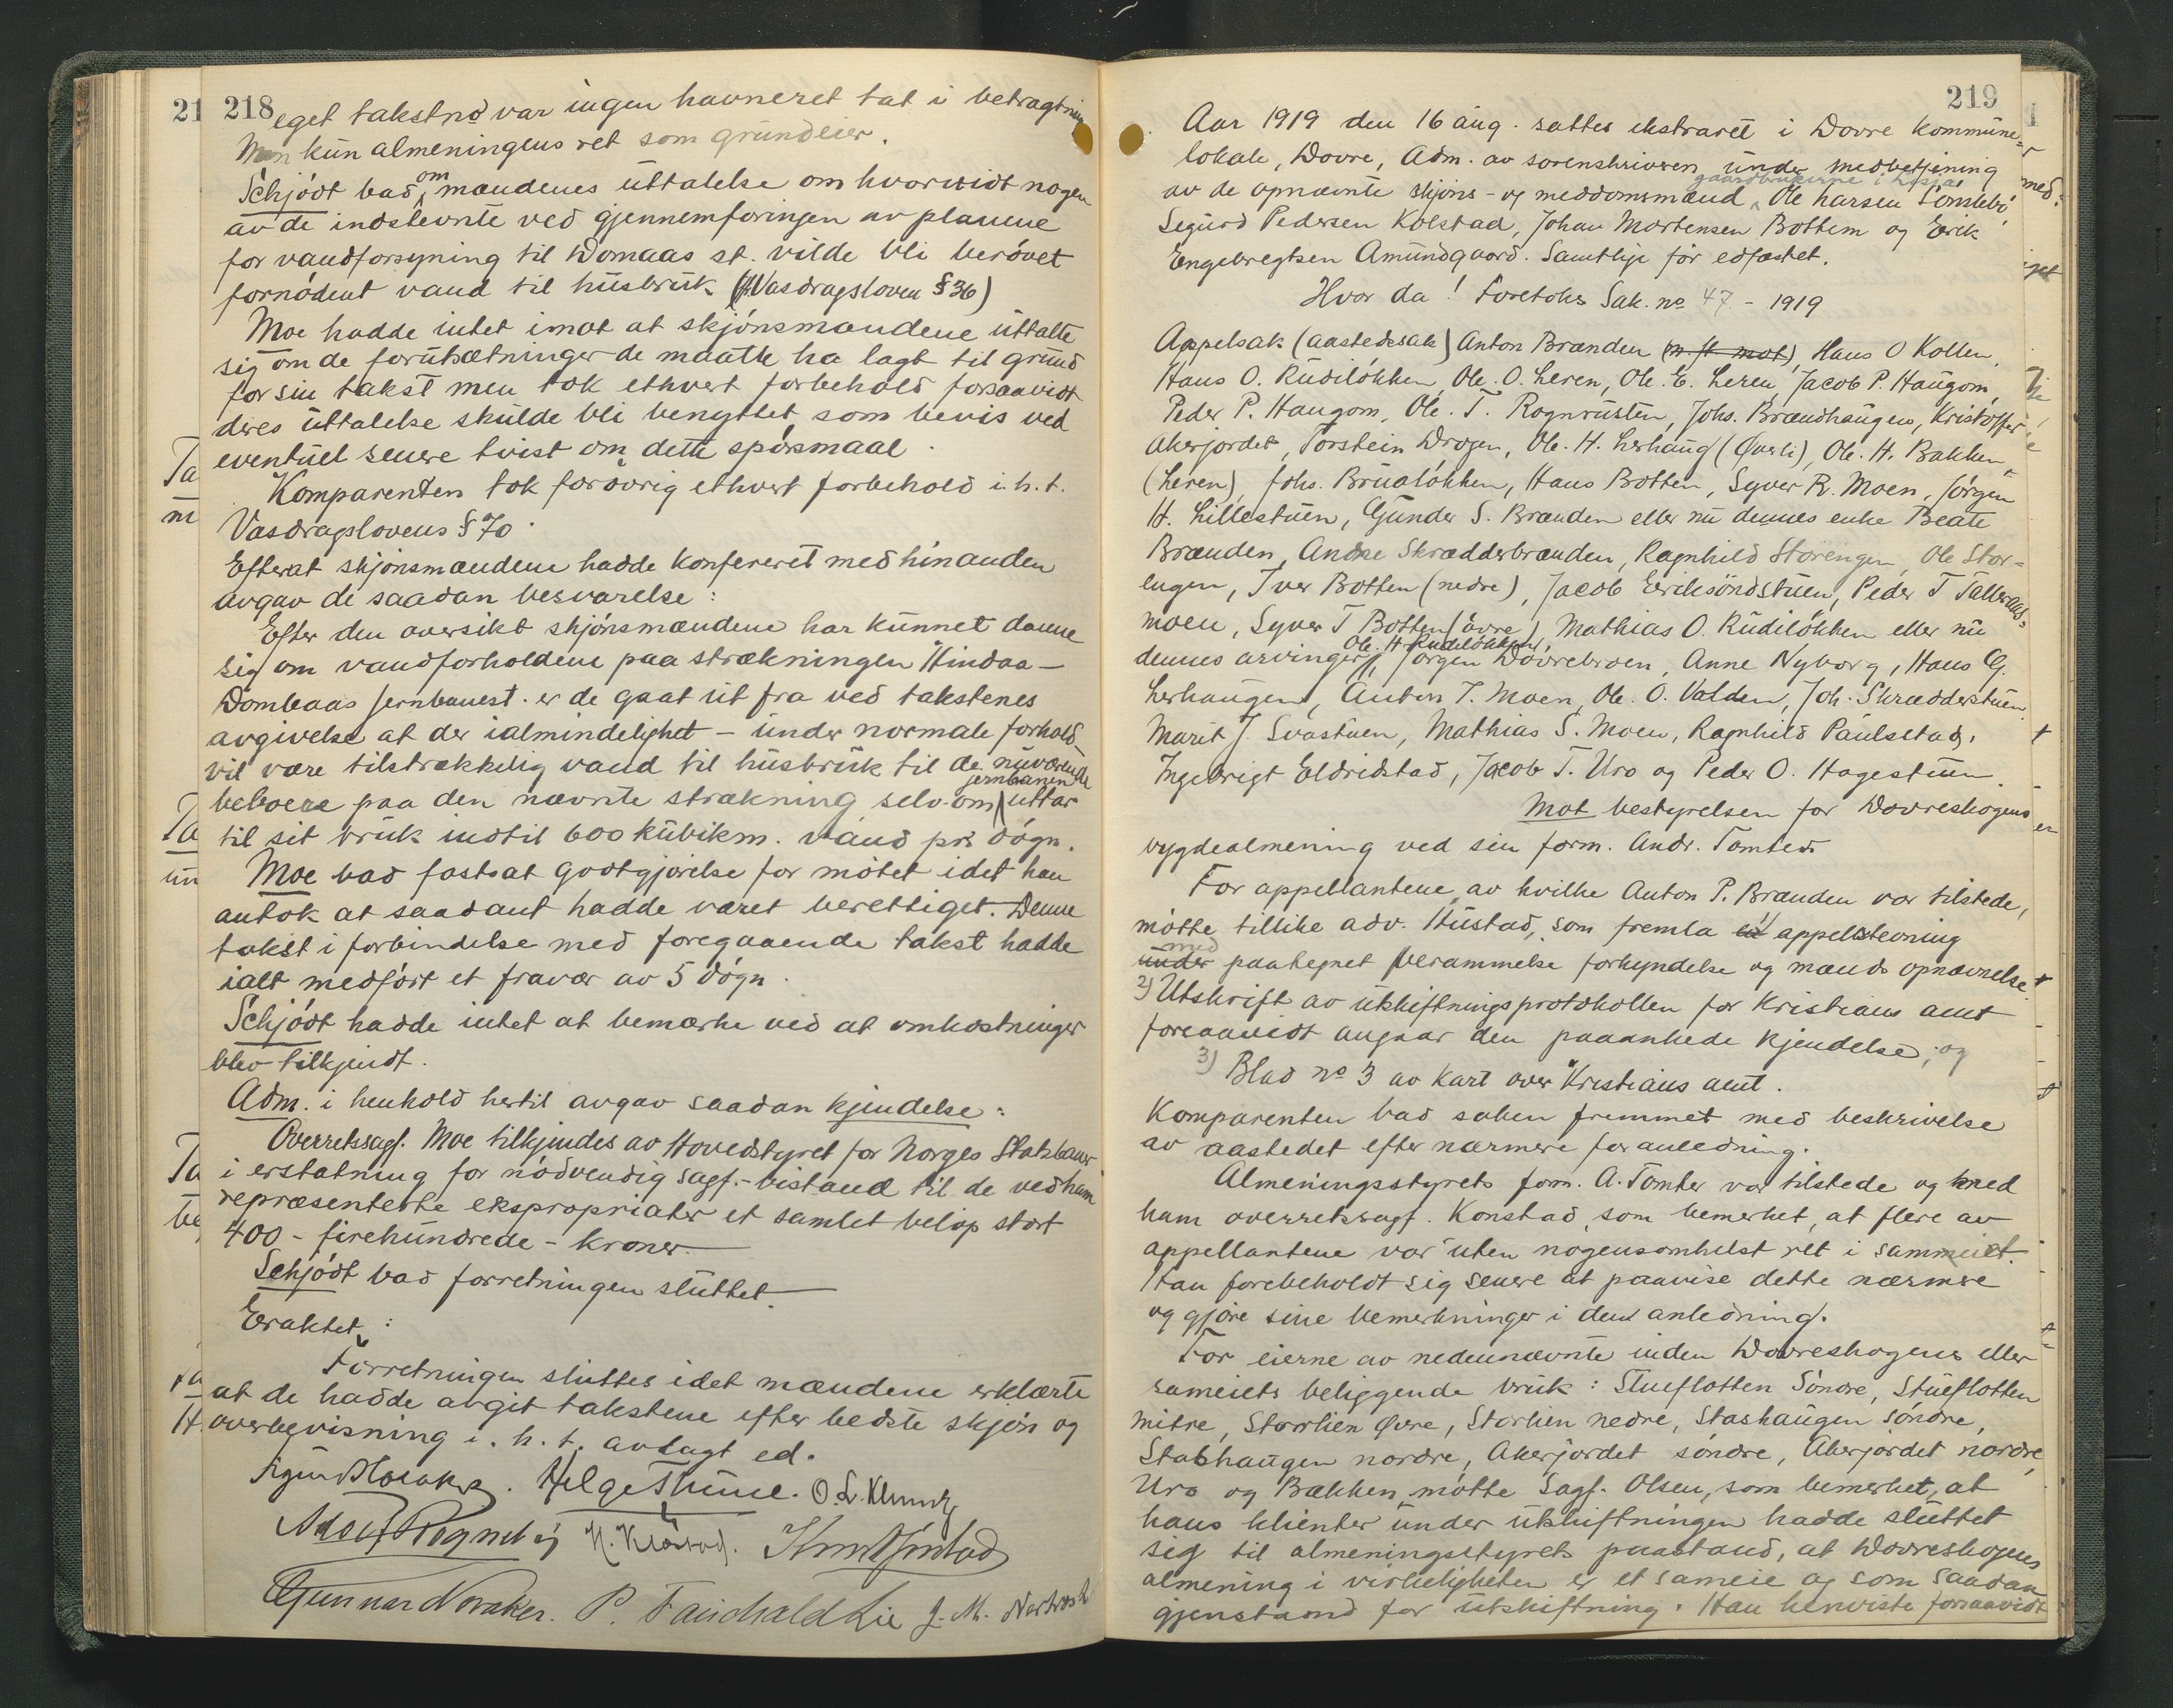 218
eget takstno var ingen havneret tat i betragtning
Men kun almeningens ret som grundeier.
Schjödt bad om mændenes uttalelse om hvorvidt nogen
av de indstevnte ved gjennemføringen av planene
for vandforsyning til Domaas st. vilde bli berövet
fornödent vand til husbruk (Vasdragsloven § 36)
Moe hadde intet imot at skjönsmændene uttalte
sig om de forutsætninger de maatte ha lagt til grund
for sin takst men tok ethvert forbehold forsaavidt
deres uttalelse skulde bli benyttet som bevis ved
eventuel senere tvist om dette spörsmaal.
Komparenten tok forövrig ethvert forbehold i. h. t.
Vasdragslovens § 70.
Efterat skjönsmændene hadde konfereret med hinanden
avgav de saadan besvarelse:
Efter den oversikt skjönsmændene har kunnet danne
sig om vandforholdene paa strækningen Hindaa-
Dombaas jernbanest. er de gaat ut fra ved takstenes
avgivelse at der ialmindelighet - under normale forhold
vil være tilstrækkelig vand til husbruk til de nuværende
beboere paa den nævnte strækning selv om jernbanen uttar
til sit bruk indtil 600 kubikm. vand pr. dögn.
Moe bad fastsat godtgjörelse for mötet idet han
antok at saadant hadde været berettiget. Denne
takst i forbindelse med foregaaende takst hadde
ialt medfört et fravær av 5 dögn.
Schjödt hadde intet at bemærke ved at omkostninger
blev tilkjendt.
Adm. i henhold hertil avgav saadan kjendelse:
Overretssagf. Moe tilkjendes av Hovedstyret for Norges Statsbaner
i erstatning for nödvendig sagf.-bistand til de ved ham
repræsenterte ekspropriater et samlet belöp stort
400 - firehundrede - kroner.
Schjödt bad forretningen sluttet.
Eraktet:
Forretningen sluttes idet mændene erklærte
at de hadde avgit takstene efter bedste skjön og
overbevisning i. h. t. avlagt ed.
Helge Thune. O. L. Klunds
Gunnar Noraker. P. Fairchald Lie J. M.
219
Aar 1919 den 16 aug. sattes ekstraret i Dovre kommune-
lokale, Dovre, Adm. av sorenskriveren under medbetjening
av de opnævnte skjöns- og meddomsmænd gaardbrukerne i Lesja Ole Larsen Sönstebö,
Sigurd Pedersen Kolstad, Johan Mortensen Bottem og Erik
Engebregtsen Amundgaard. Samtlige för edfæstet.
Hvor da! Foretokes Sak. no 47 - 1919
Appelsak (aastedssak) Anton Brænden (m. fl. mot), Hans O Kollen,
Hans O. Rudilökken, Ole. O. Leren, Ole. E. Leren, Jacob P. Haugom,
Peder P. Haugom, Ole. T. Rognrusten, Johs. Brændhaugen, Kristoffer
Akerjordet, Torstein Drogen, Ole. H. Lerhaug (Øverli), Ole. H. Bakken,
(Leren), Johs. Brualökken, Hans Botten, Syver R. Moen, Jörgen
H. Lillestuen, Gunder S. Brænden eller nu dennes enke Beate
Brænden, Andre Skrædderbrænden, Ragnhild Storengen, Ole Stor-
engen, Iver Botten (nedre), Jacob Eriksöndstuen, Peder T Tallerаas-
moen, Syver T Botten (övre), Mathias O. Rudilökken eller nu
dennes arvinger, Ole. H. Rudilökken, Jörgen Dovrebroen, Anne Nyborg, Hans G.
Lerhaugen, Anton T. Moen, Ole. O. Valden, Joh. Skrædderstuen,
Marit J. Svastuen, Mathias S. Moen, Ragnhild Paulsstad,
Ingebrigt Eldridstad, Jacob T. Uro og Peder O. Hagestuen
Mot bestyrelsen for Dovreskogens
bygdealmening ved sin form. Andr. Tomter.
For appellantene, av hvilke Anton P. Brænden var tilstede,
mötte tillike adv. Hustad, som fremla 1) appelstevning
med paategnet berammelse forkyndelse og mænds opnævnelse.
2) Utskrift av utskiftningsprotokollen for Kristians amt
forsaavidt angaar den paaankede kjendelse; og
3) Blad no 3 av kart over Kristians amt.
Komparenten bad saken fremmet med beskrivelse
av aastedet efter nærmere foranledning.
Almeningsstyrets form. A. Tomter var tilstede og med
ham overretssagf. Konstad, som bemerket, at flere av
appellantene var uten nogensomhelst ret i sammeiet.
Han forebeholdt sig senere at paavise dette nærmere
og gjöre sine bemerkninger i den anledning.
For eierne av nedennævnte inden Dovreskogens eller
sameiets beliggende bruk: Stueflotten Söndre, Stueflotten
mitre, Storlien Øvre, Storlien nedre, Stabhaugen söndre,
Stabhaugen nordre, Akerjordet söndre, Akerjordet nordre,
Uro og Bækken mötte Sagf. Olsen, som bemerket, at
hans klienter under utskiftningen hadde sluttet
seg til almeningsstyrets paastand, at Dovreskogens
almening i virkeligheten er et sameie og som saadan
gjenstand for utskiftning. Han henviste forsaavidt